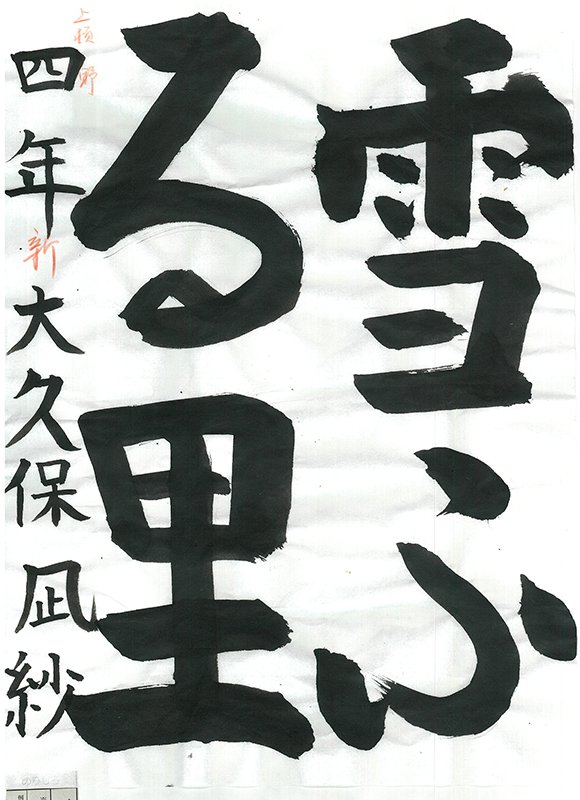 雪ふ
る里
四年 大久保凪紗
新